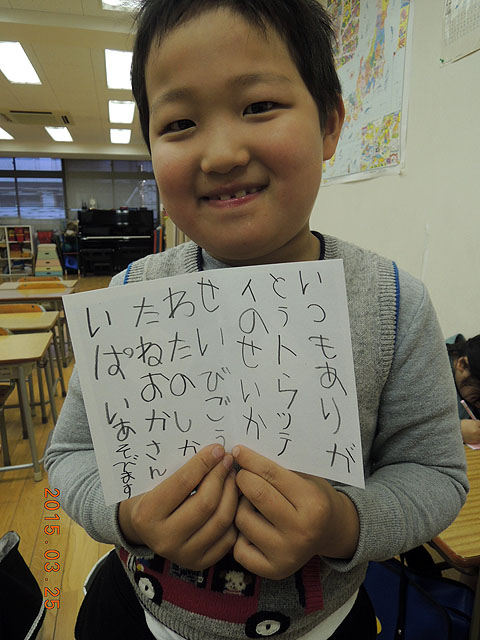 いつもありが
とうトラッテ
イのせいか
せいびごう
わたのしか
たねおかさん
いぱいあそでます
2015.03.25